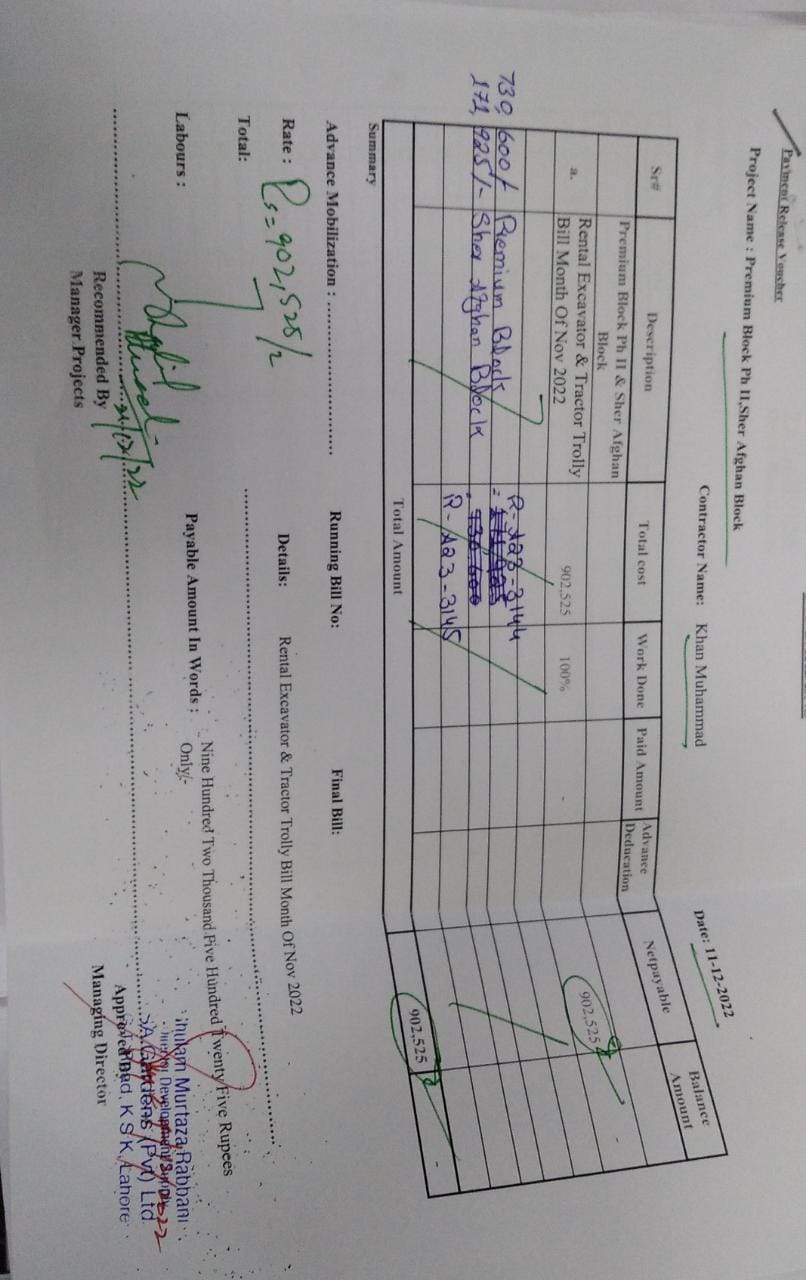 Payment Release Voucher
Project Name : Premium Block Ph II,Sher Afghan Block
Contractor Name: Khan Muhammad
Date: 11-12-2022
Sr# Description Total cost Work Done Paid Amount Advance Deducation Netpayable Balance Amount
Premium Block Ph II & Sher Afghan Block
a. Rental Excavator & Tractor Trolly Bill Month Of Nov 2022 902,525 100% - 902,525 -
730,600/- Premium Block R-123-3144
171,925/- Sher Afghan Block = 171,925
730,600
R-123-3145
Total Amount 902,525 -
Summary
Advance Mobilization : Running Bill No: Final Bill:
Rate : Rs=902,525/- Details: Rental Excavator & Tractor Trolly Bill Month Of Nov 2022
Total:
Labours : Payable Amount In Words : Nine Hundred Two Thousand Five Hundred Twenty Five Rupees Only/-
21/12/22
Recommended By
Manager Projects
Ghulam Murtaza Rabbani
SA Gardens (Pvt) Ltd
K S K, Lahore
Approved By
Managing Director